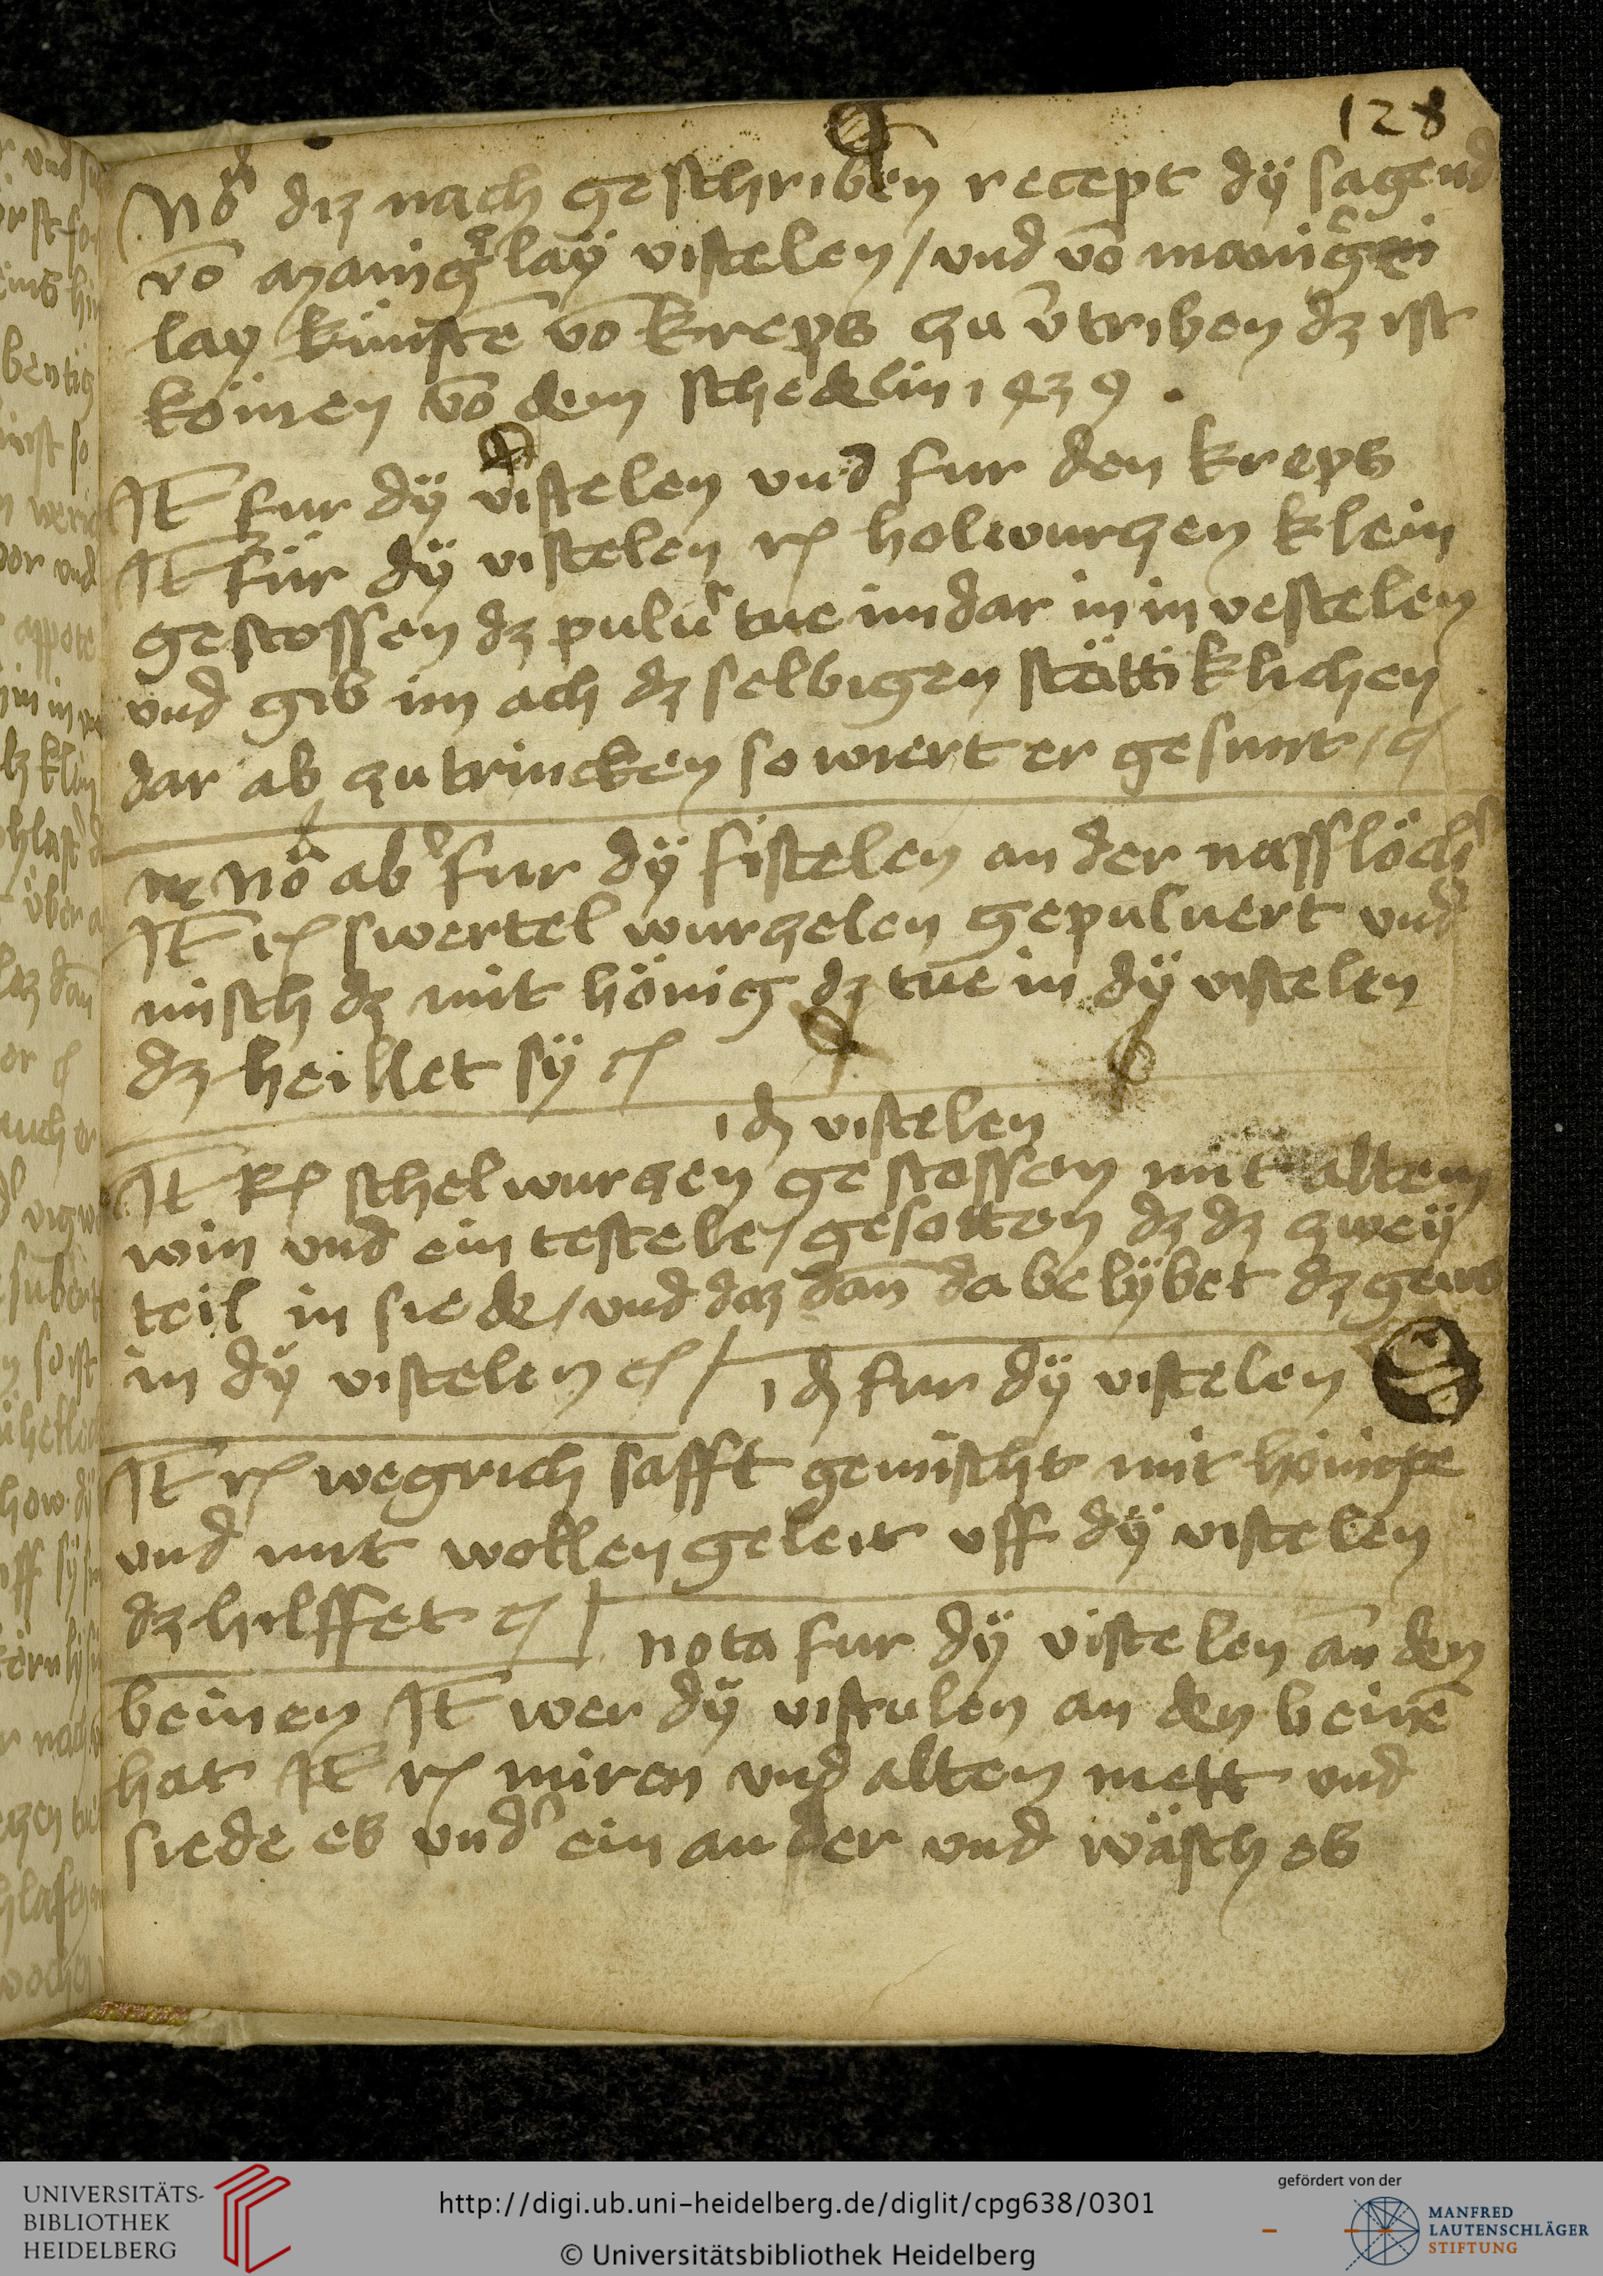 128
No diz nach geschriben recept dÿ sagend
vō maniger laÿ vistelen / vnd vō maniger
lay künste vō kreps zu v̄triben dz ist
kömen vō dem schedelin 1439 .
It fur dÿ vistelen vnd fur den kreps
It für dÿ vistelen rp holwurzen klein
gestossen dz puluer tue im dar in in vestelen
vnd gib im ach dz selbigen stättiklichen
dar ab zu trincken so wiert er gesunt / etc
No aber fur dÿ fistelen an der nasslöcher
It rp swertel wurzelen gepuluert vnd
misch dz mit hönig dz tue in dÿ vistelen
dz heillet sÿ etc
id vistelen
It Rp schelwurzen gestossen mit altem
win vnd ein testele / gesotten dz dz zweÿ
teil in siede / vnd daz dañ da belÿbet dz geus
in dÿ vistelen etc / id fur dÿ vistelen
It rp wegrich safft gemischt mit hönige
vnd mit wollen geleit vff dÿ vistelen
dz hilffet etc nota fur dÿ vistelen an den
beinen It wer dÿ vistulen an den beinē
hat It rp miren vnd alten mett vnd
siede es vnder ein ander vnd wäsch es
UNIVERSITÄTS-
BIBLIOTHEK
HEIDELBERG
http://digi.ub.uni-heidelberg.de/diglit/cpg638/0301
© Universitätsbibliothek Heidelberg
gefördert von der
MANFRED
LAUTENSCHLÄGER
STIFTUNG